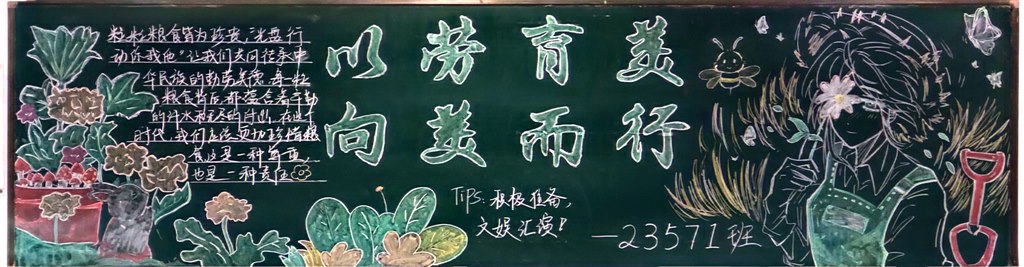 粒粒粮食皆为珍宝，"光盘行
动你我他"让我们共同传承中
华民族的勤劳美德，每一粒
粮食背后都蕴含着辛勤
的汗水和无尽的付出，在这个
时代，我们应该更加珍惜粮
食这是一种美德，
也是一种责任
以劳育美
向美而行
TIPS：积极准备，
文娱汇演！
—23571班